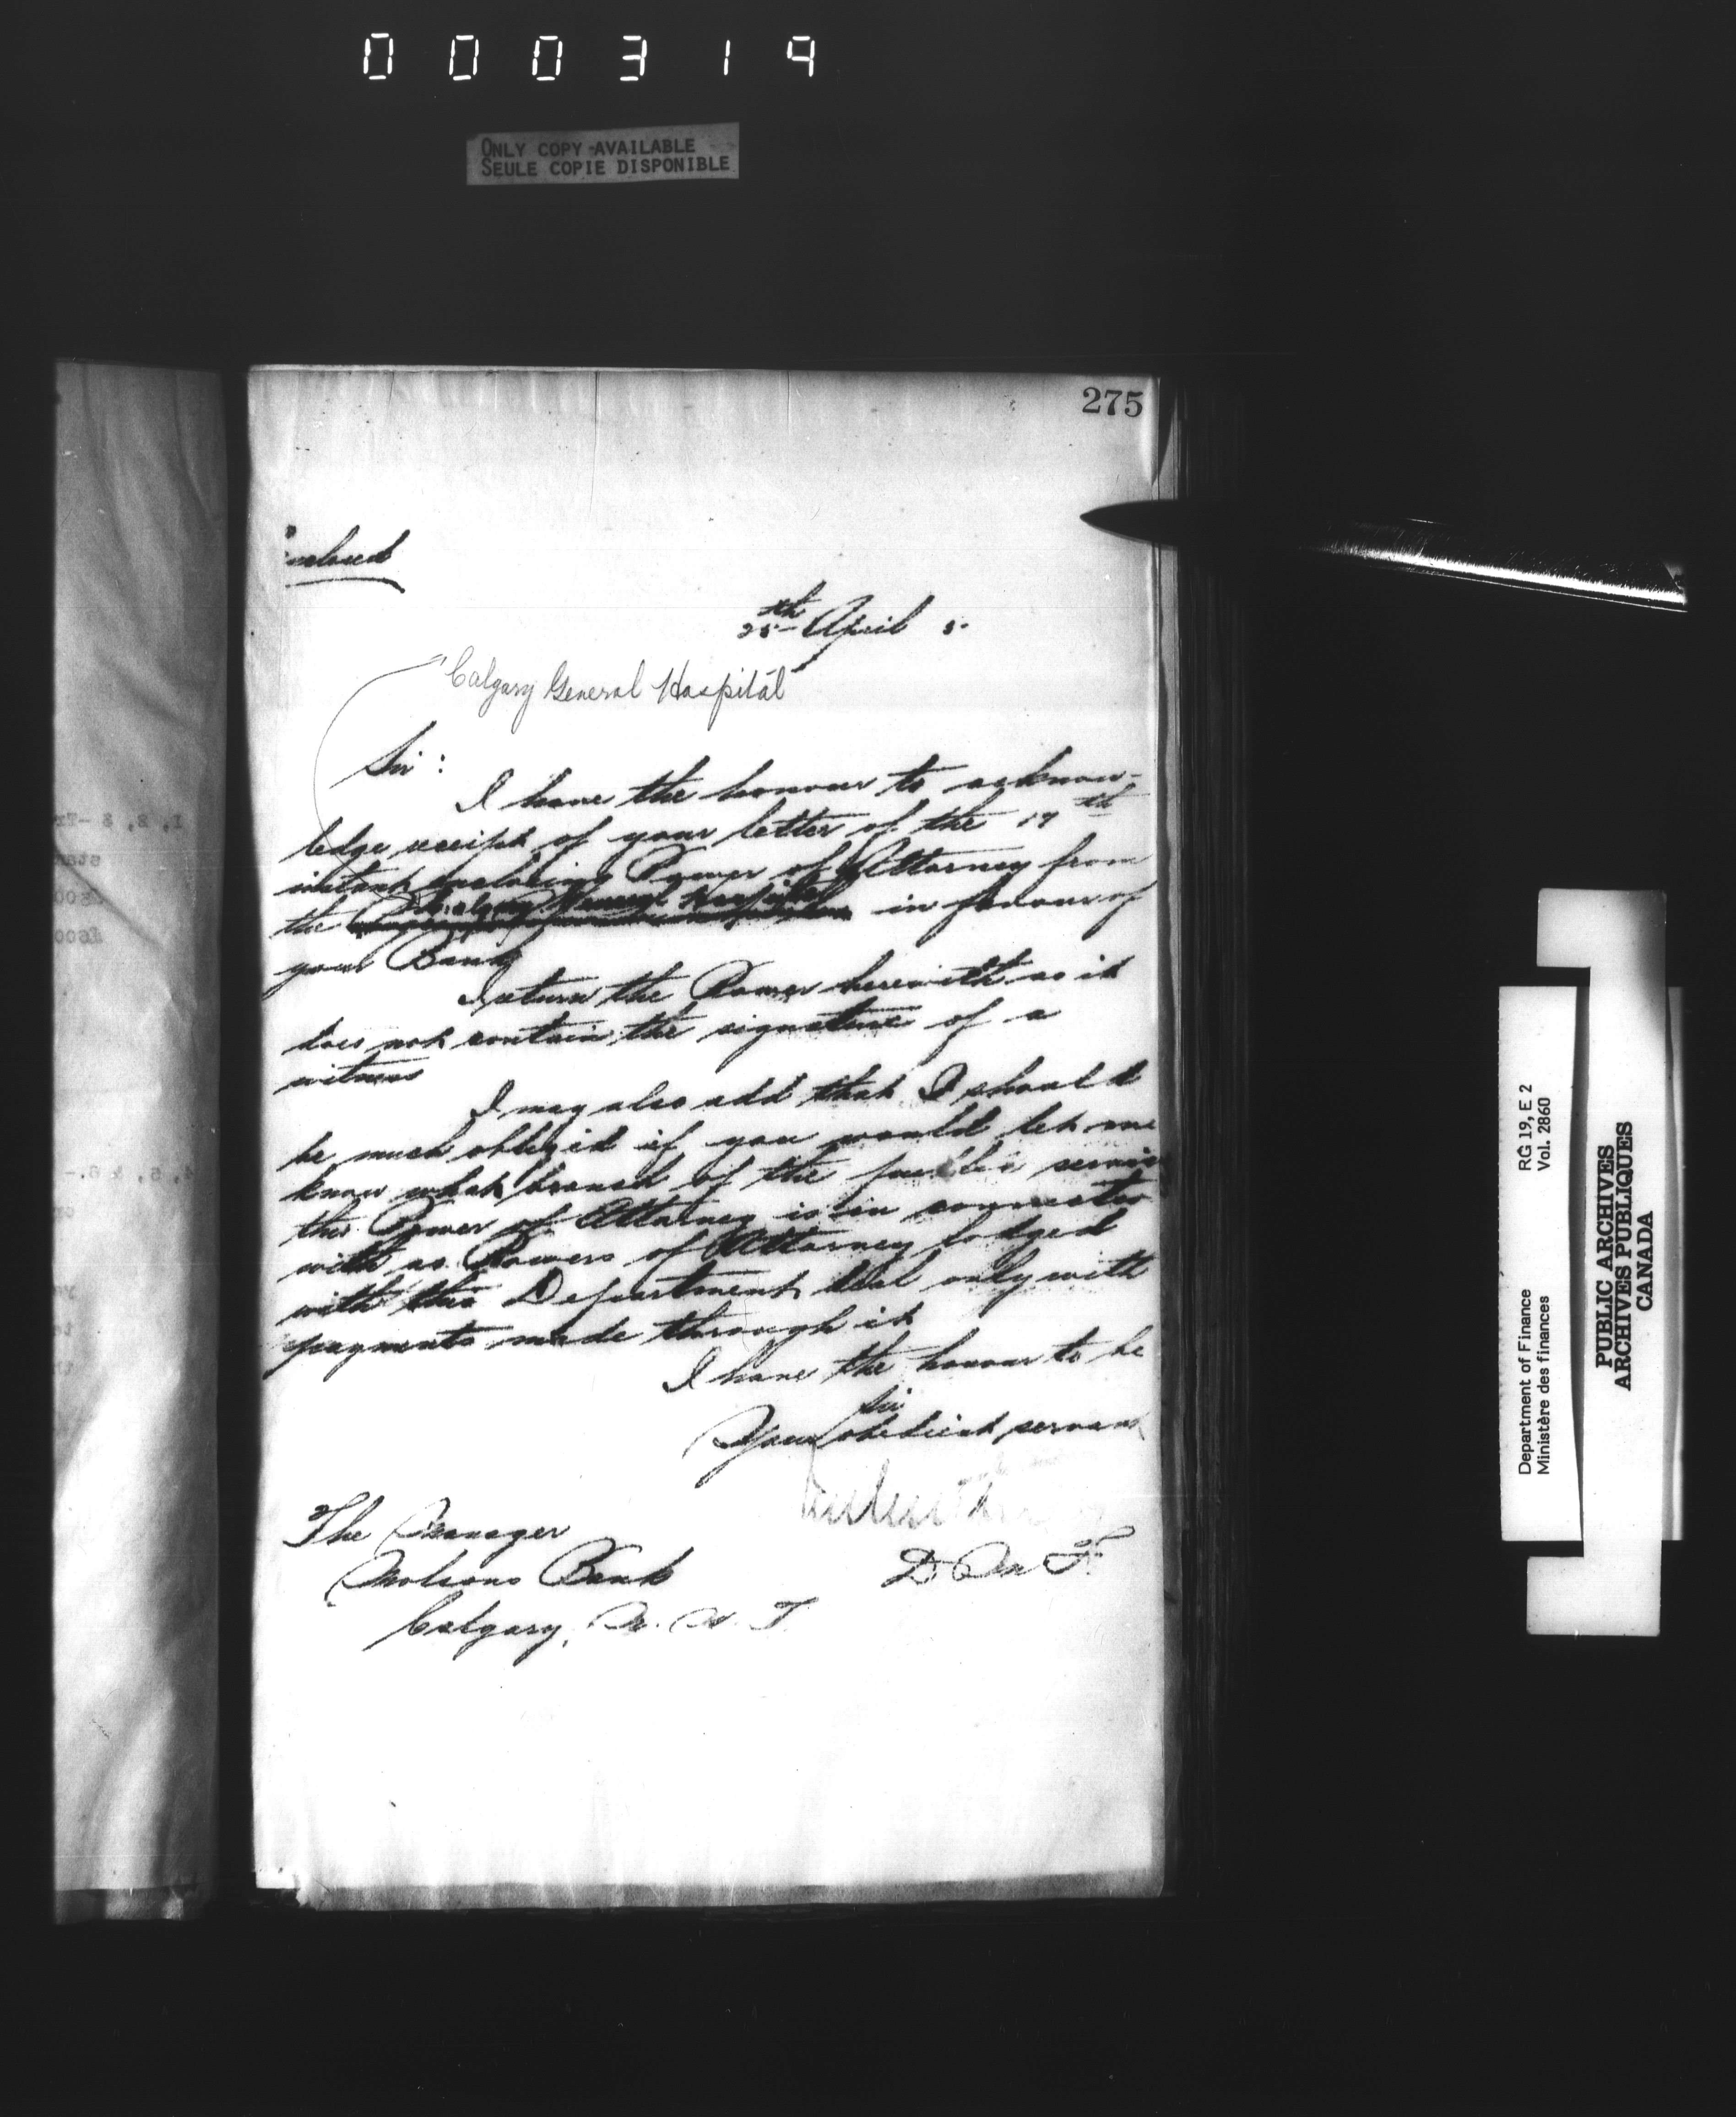 000319
ONLY COPY AVAILABLE
SEULE COPIE DISPONIBLE
275
25th April 5.
Calgary General Hospital
Sir:
I have the honour to acknow-
ledge receipt of your letter of the 19th
instant enclosing Power of Attorney from
the Calgary General Hospital in favour of
your Bank
I return the Power herewith as it
does not contain the signature of a
witness
I may also add that I should
be much obliged if you would let me
know what branch of the public service
this Power of Attorney is in connection
with as Powers of Attorney lodged
with this Department deal only with
payments made through it
I have the honour to be
Sir
Your obedient servant
D M F.
The Manager
Molsons Bank
Calgary, N. W. T.
Department of Finance RG 19, E 2
Ministère des finances Vol. 2860
PUBLIC ARCHIVES
ARCHIVES PUBLIQUES
CANADA